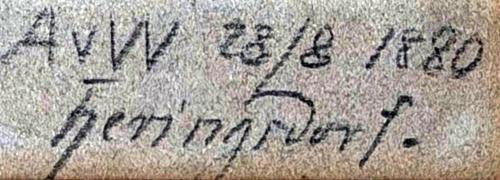 AvW 28/8 1880
Heringsdorf.